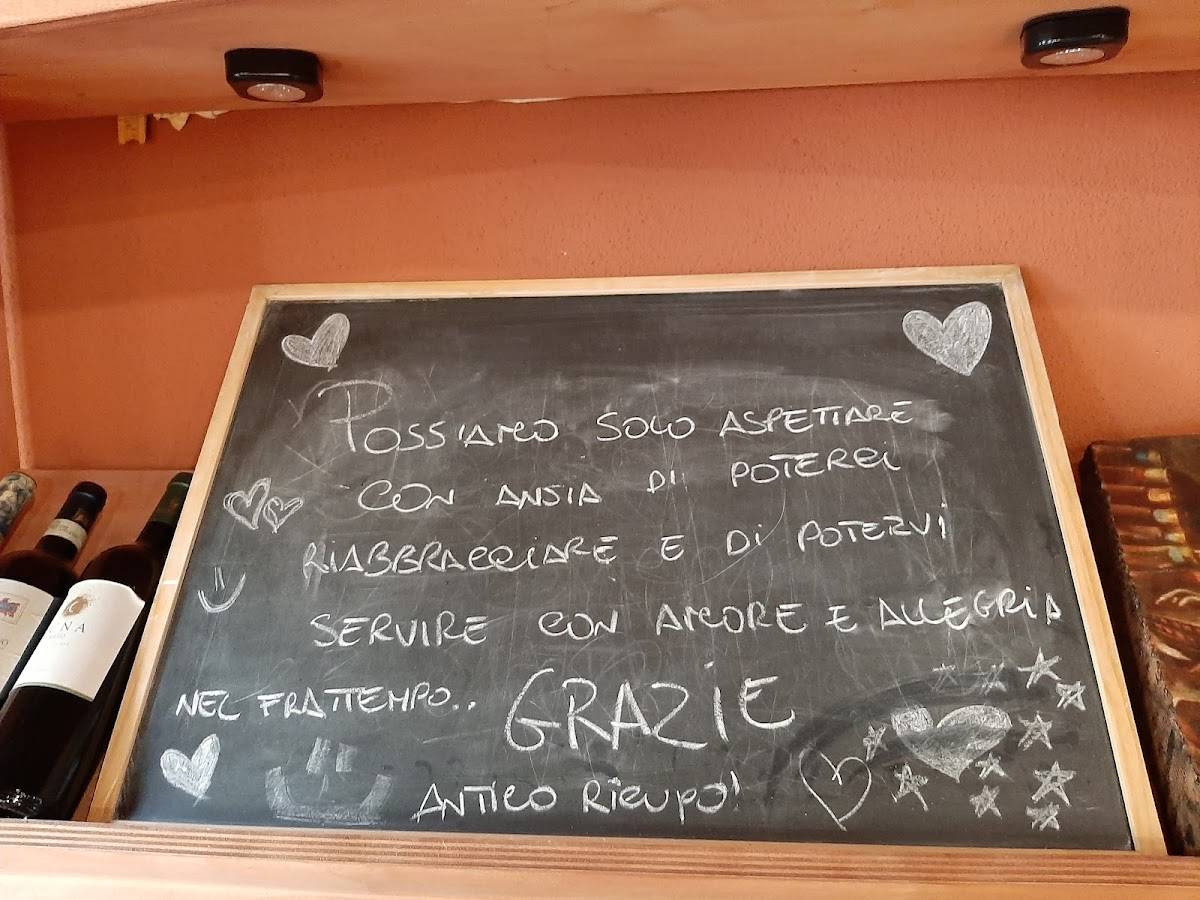 POSSIAMO SOLO ASPETTARE
CON ANSIA DI POTERCI
RIABBRACCIARE E DI POTERVI
SERVIRE CON AMORE E ALLEGRIA
NEL FRATTEMPO.. GRAZIE
ANTICO RICUPO'